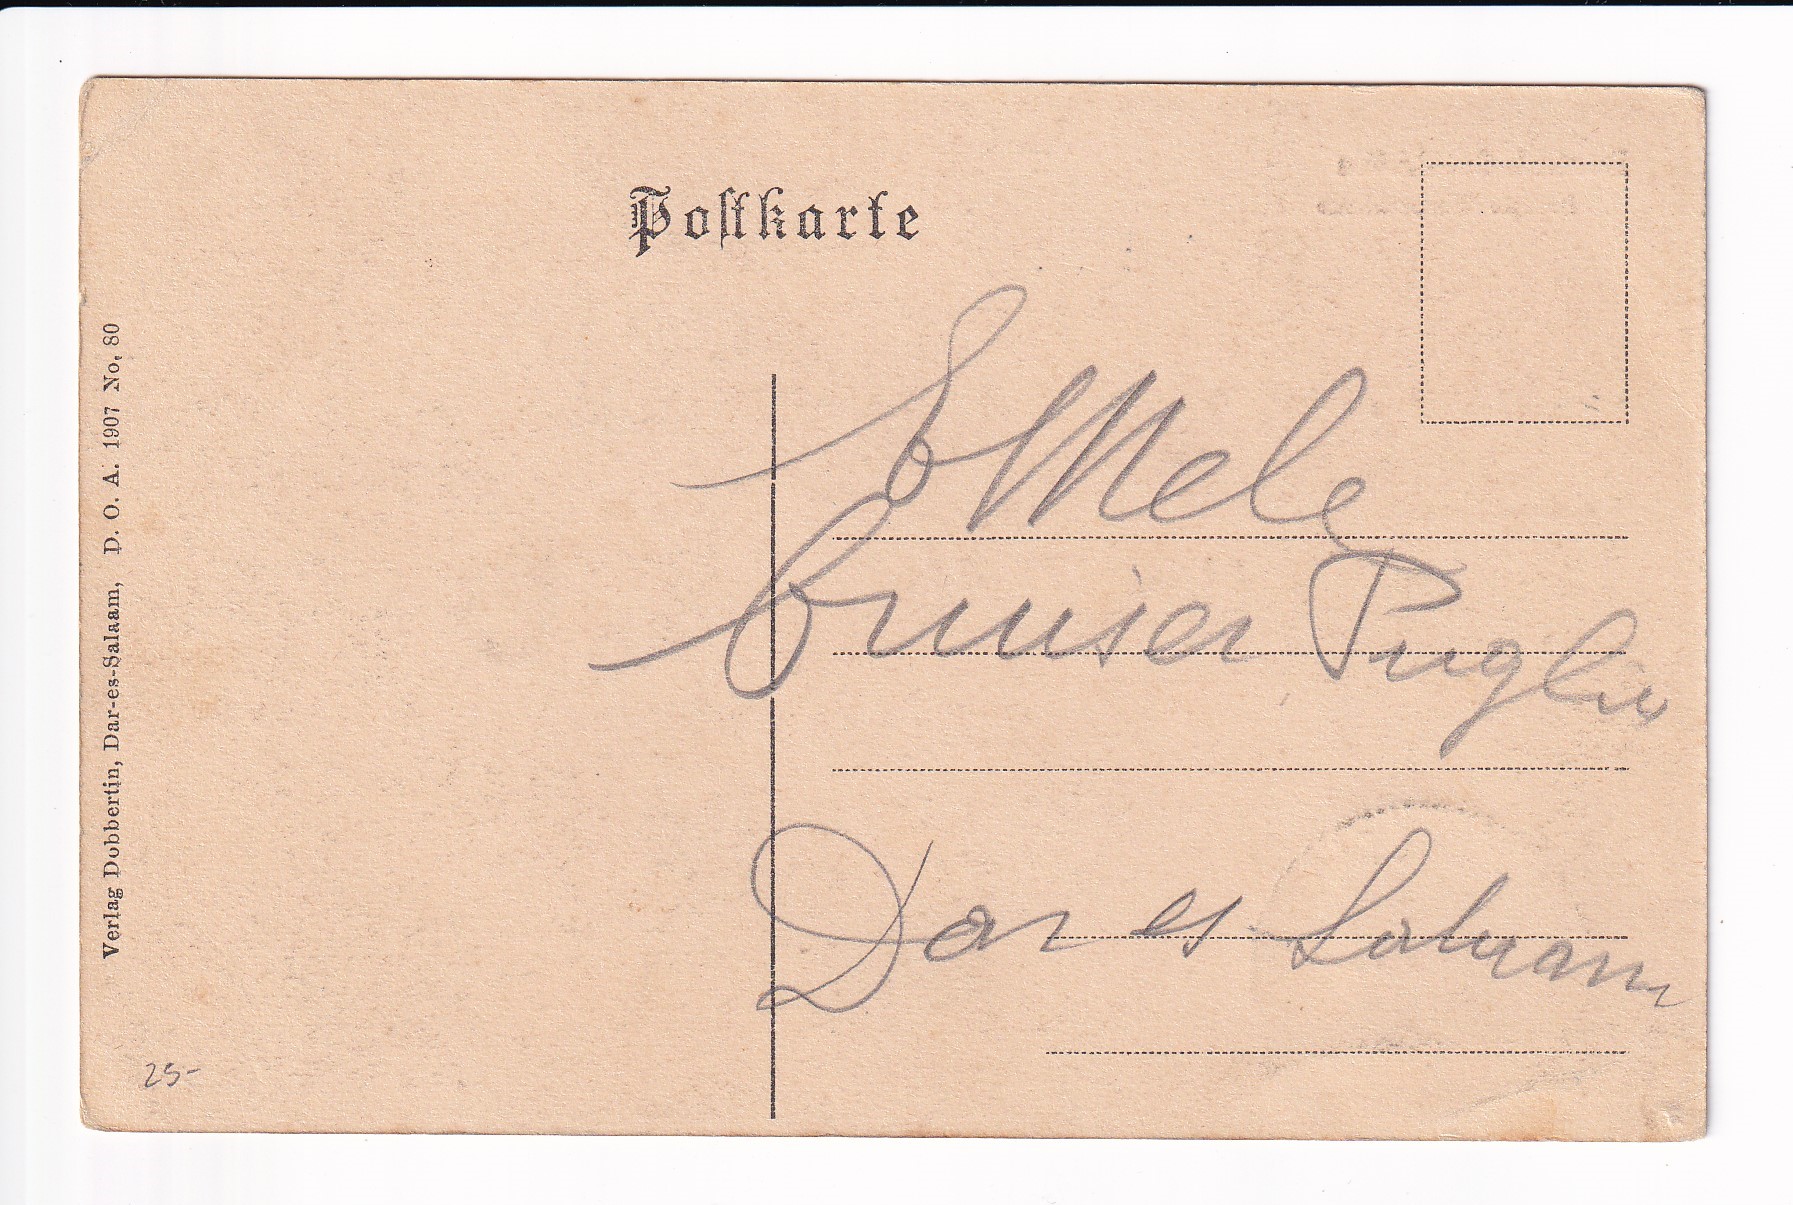 Postkarte
Cruiser Puglia
Dar es Salaam
Verlag Dobbertin, Dar-es-Salaam, D. O. A. 1907 No. 80
25-